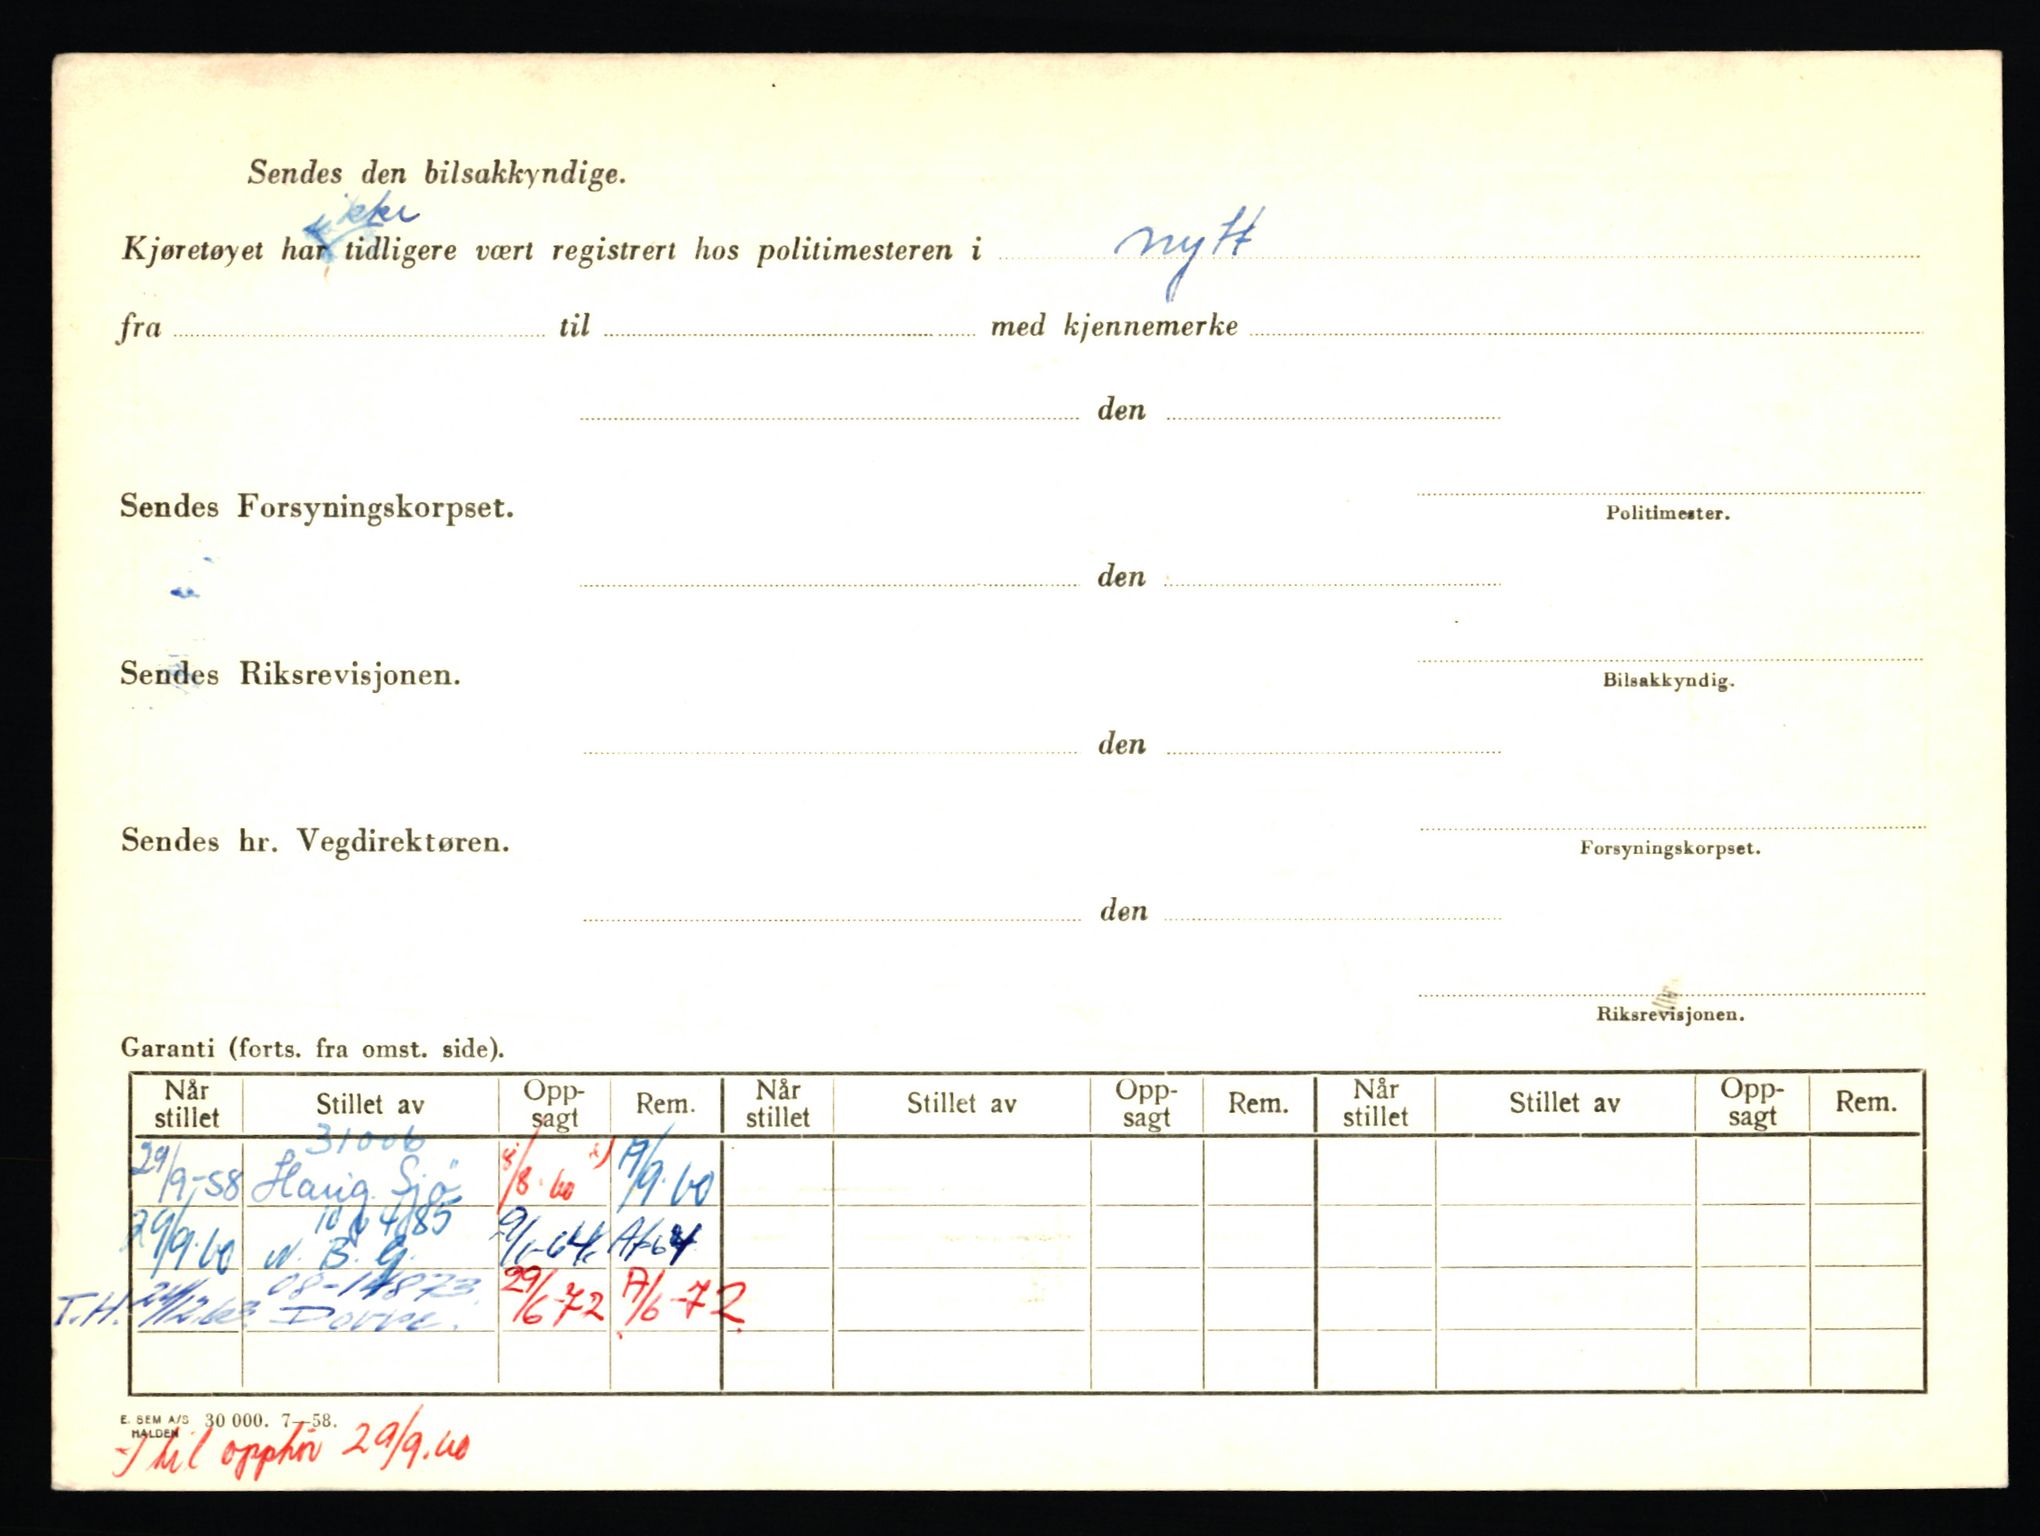 Sendes den bilsakkyndige.
ikke
Kjøretøyet har tidligere vært registrert hos politimesteren i nytt
fra til med kjennemerke
den
Sendes Forsyningskorpset.
Politimester.
den
Sendes Riksrevisjonen.
Bilsakkyndig.
den
Sendes hr. Vegdirektøren.
Forsyningskorpset.
den
Riksrevisjonen.
Garanti (forts. fra omst. side).
Når stillet Stillet av Opp-sagt Rem. Når stillet Stillet av Opp-sagt Rem. Når stillet Stillet av Opp-sagt Rem.
31006
29/9-58 Haug. Sjø /8.60 A/9.60
29/9.60 N. B. G.
08-14873
T.H. Dovre. 29/6-72 A/6-72
E. SEM A/S 30 000. 7—58.
HALDEN
til opphør 29/9.60